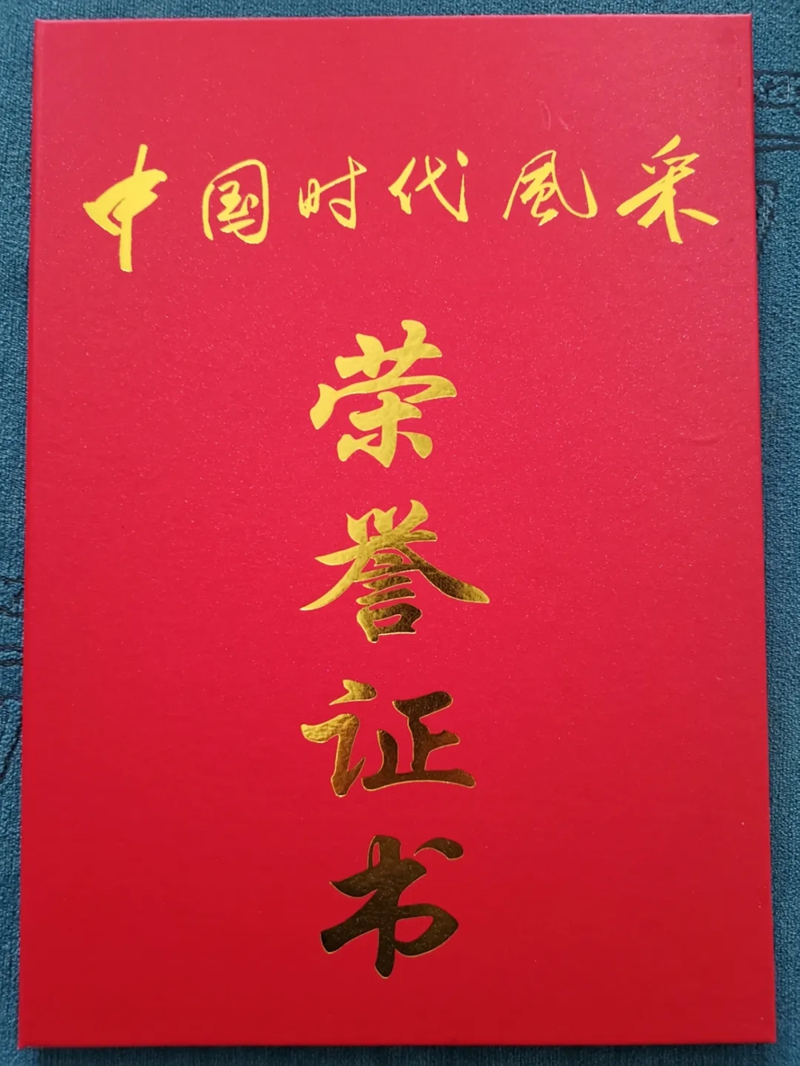 中国时代風采
荣誉证书